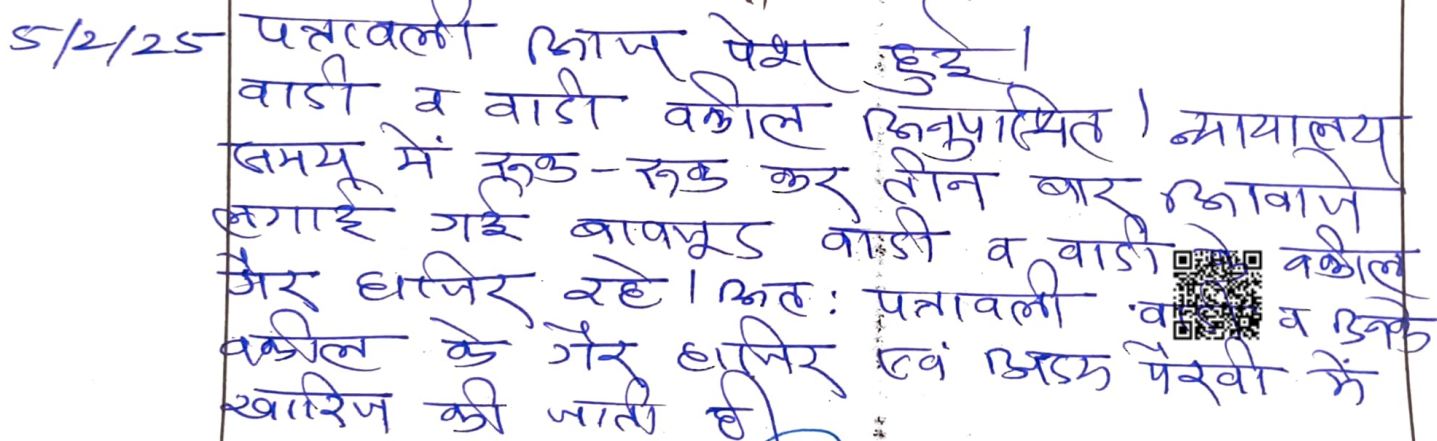 5/2/25 पत्रावली आज पेश हुई।
वादी व वादी वकील अनुपस्थित। न्यायालय
समय में रूक-रूक कर तीन बार आवाजे
लगाई गई बावजूद वादी व वादी के वकील
गैर हाजिर रहे। अतः पत्रावली व उनके
वकील के गैर हाजिर एवं अदम पैरवी में
खारिज की जाती है।